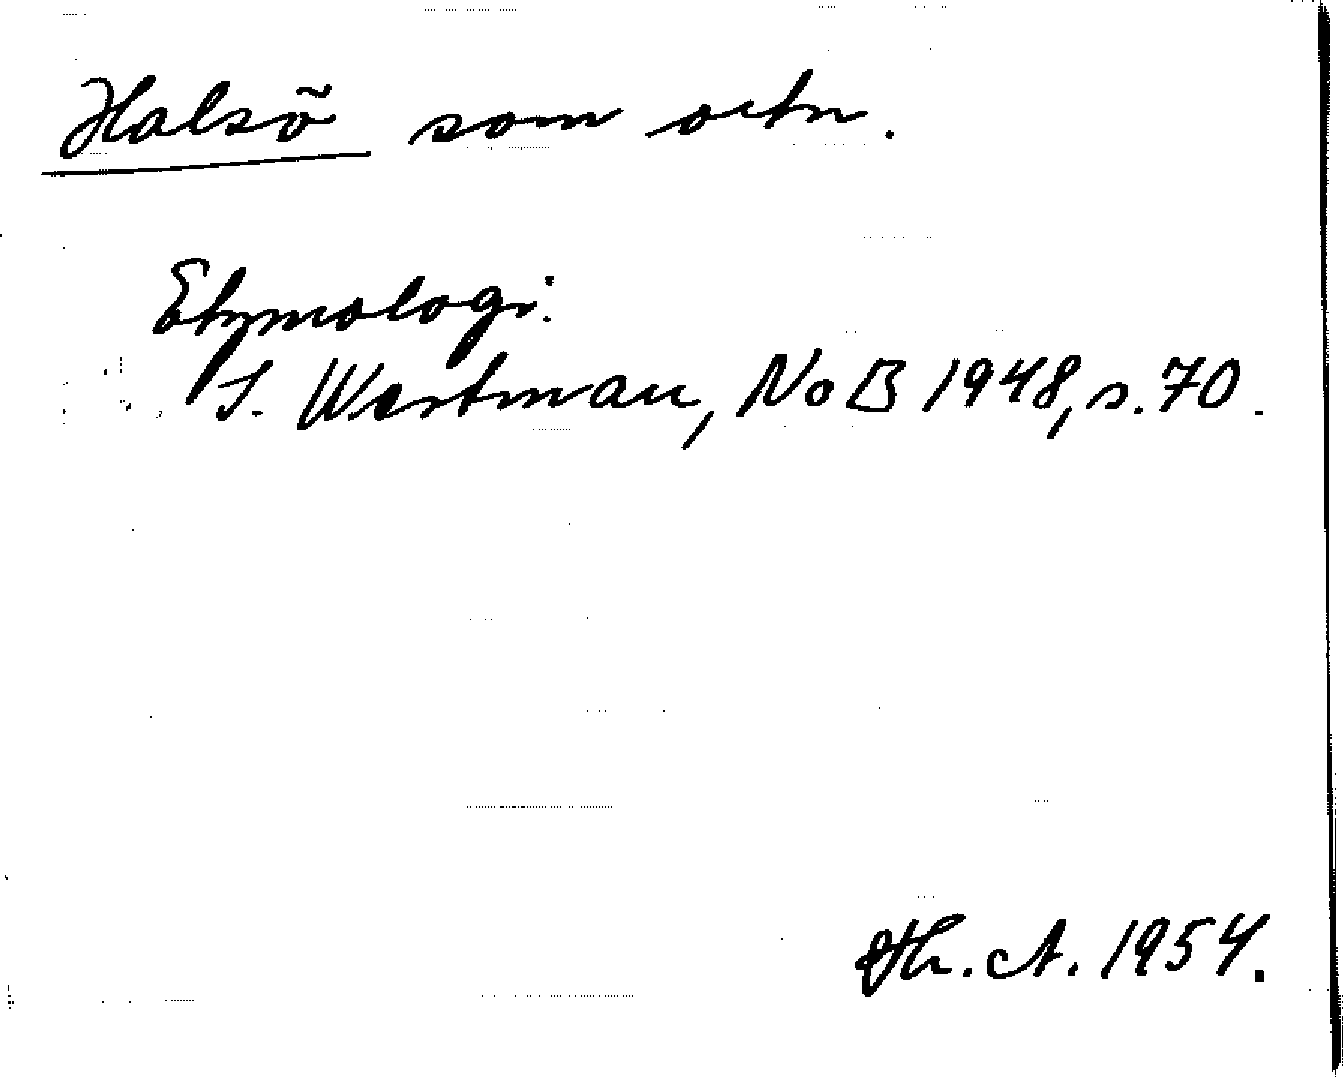 Halsö som ortn.
Etymologi:
S. Westman, NoB 1948, s. 70.
Th. A. 1954.